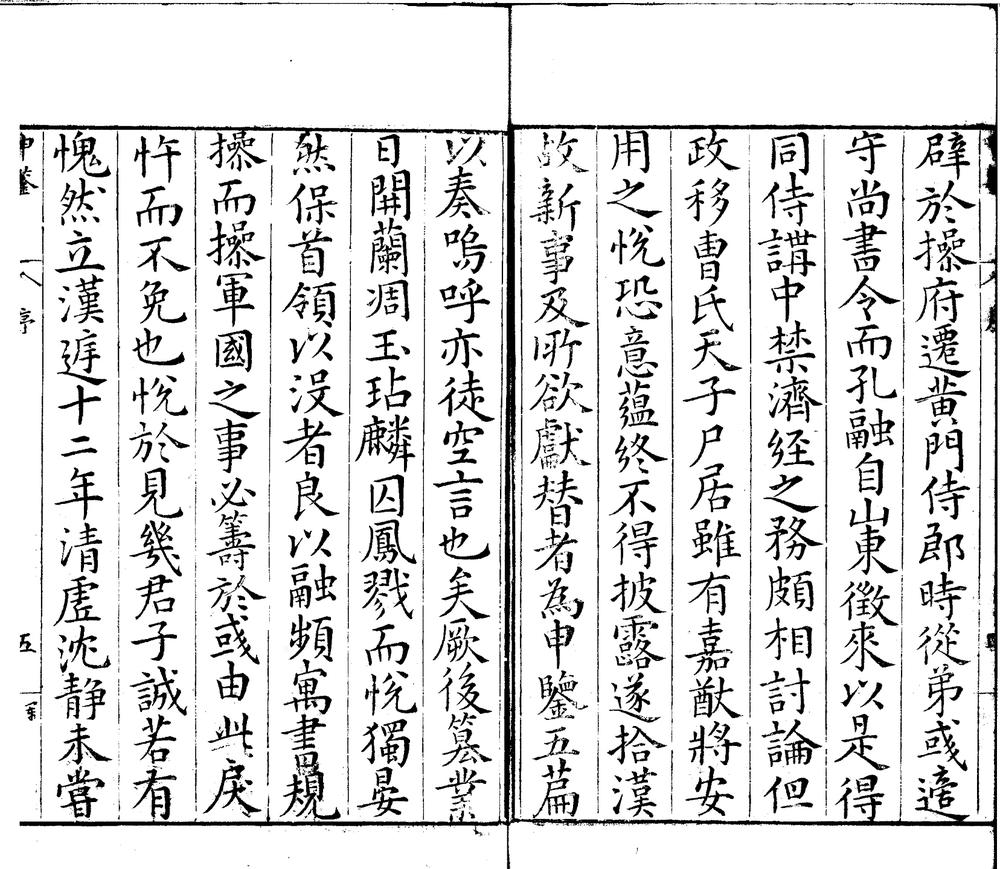 辟於操府遷黃門侍郎時從弟彧適
守尚書令而孔融自山東徵來以是得
同侍講中禁濟經之務頗相討論但
政移曹氏天子尸居雖有嘉猷將安
用之悅恐意蘊終不得披露遂拾漢
故新事及所欲獻替者為申鑒五篇
以奏嗚呼亦徒空言也矣厥後篡業
日開蘭凋玉玷麟囚鳳戮而悅獨晏
然保首領以沒者良以融頻寓書規
操而操軍國之事必籌於彧由此戾
忤而不免也悅於見幾君子誠若有
愧然立漢廷十二年清虛沈靜未嘗
申鑒 序 五